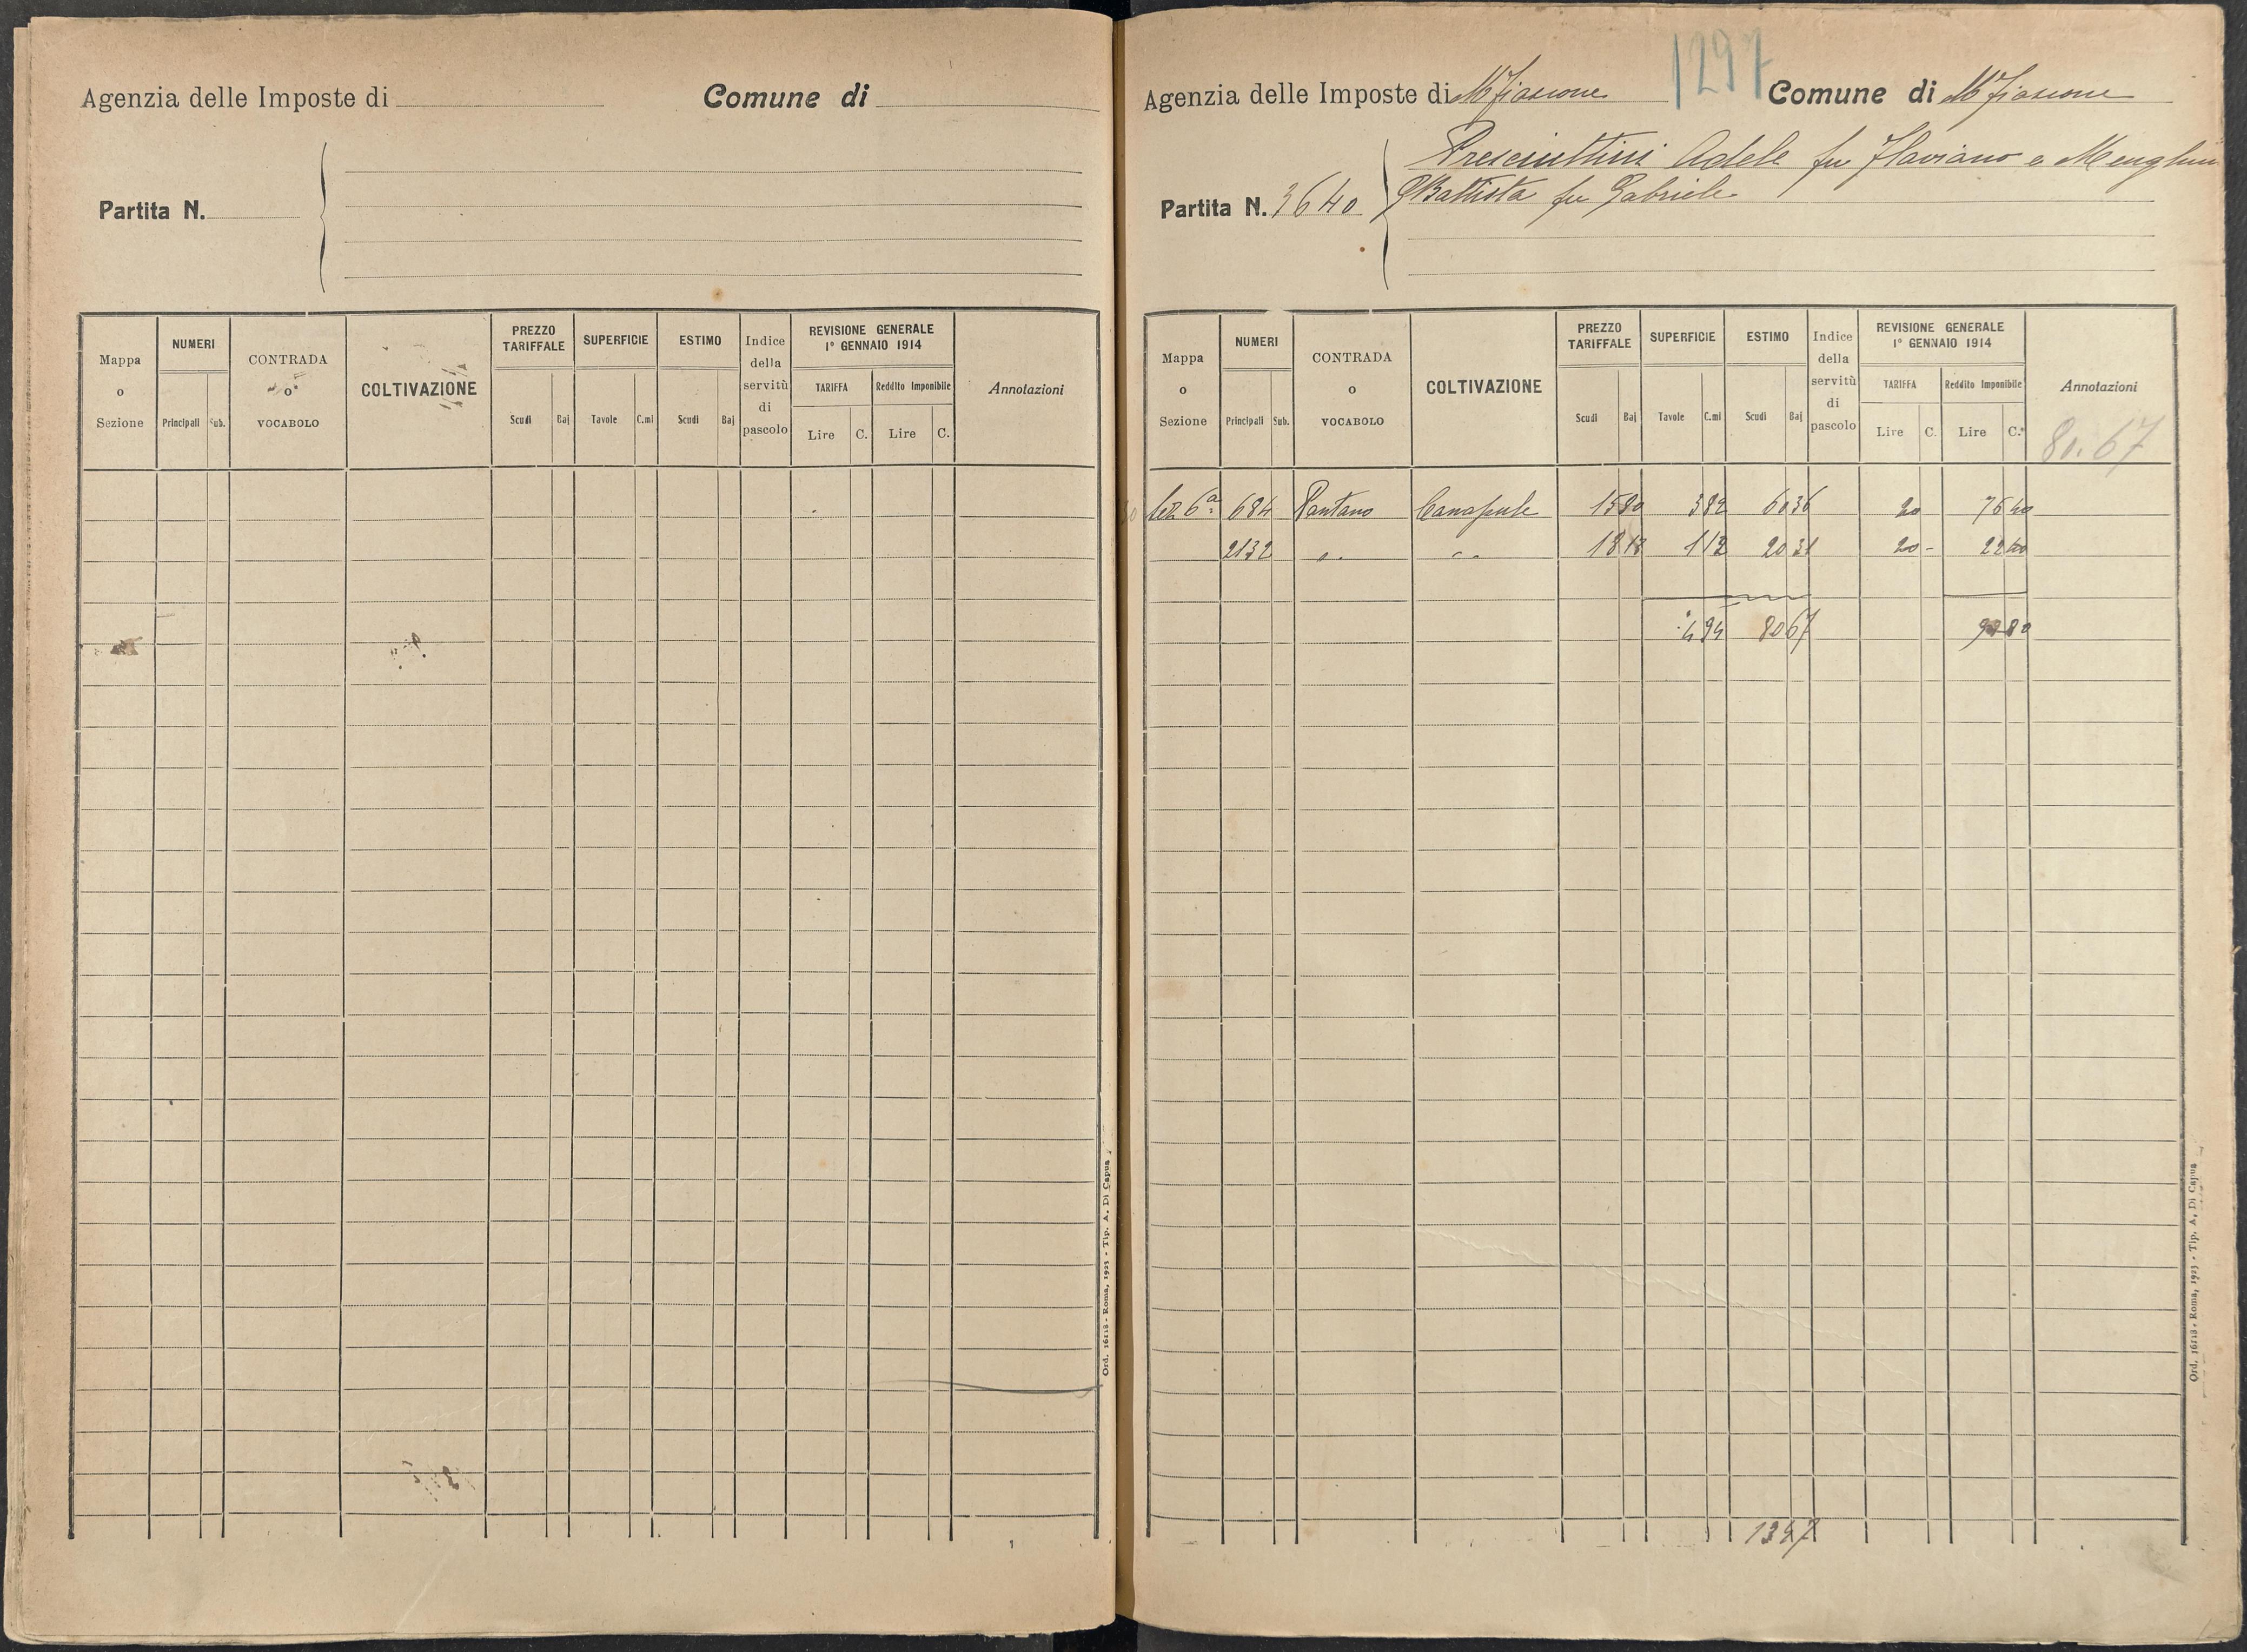 Agenzia delle Imposte di
Comune di
Partita N.
Mappa o Sezione
NUMERI
Principali Sub.
CONTRADA o VOCABOLO
COLTIVAZIONE
PREZZO TARIFFALE
Scudi Baj
SUPERFICIE
Tavole C.mi
ESTIMO
Scudi Baj
Indice della servitù di pascolo
REVISIONE GENERALE
1° GENNAIO 1914
TARIFFA Reddito Imponibile
Lire C. Lire C.
Annotazioni
Ord. 16118 - Roma, 1923 - Tip. A. Di Capua
1297
Agenzia delle Imposte di M Fiascone Comune di M Fiascone
Presciuttini Adele fu Flaviano e Menghini
Partita N. 3640 Battista fu Gabriele
Mappa o Sezione
NUMERI
Principali Sub.
CONTRADA o VOCABOLO
COLTIVAZIONE
PREZZO TARIFFALE
Scudi Baj
SUPERFICIE
Tavole C.mi
ESTIMO
Scudi Baj
Indice della servitù di pascolo
REVISIONE GENERALE
1° GENNAIO 1914
TARIFFA Reddito Imponibile
Lire C. Lire C.
Annotazioni
80.67
Sez 6a 684 Pantano Canapule 15 80 3 82 60 36 20 76 40
2132 " " 18 13 1 12 20 31 20 - 22 40
4 94 80 67 98 80
Ord. 16118 - Roma, 1923 - Tip. A. Di Capua